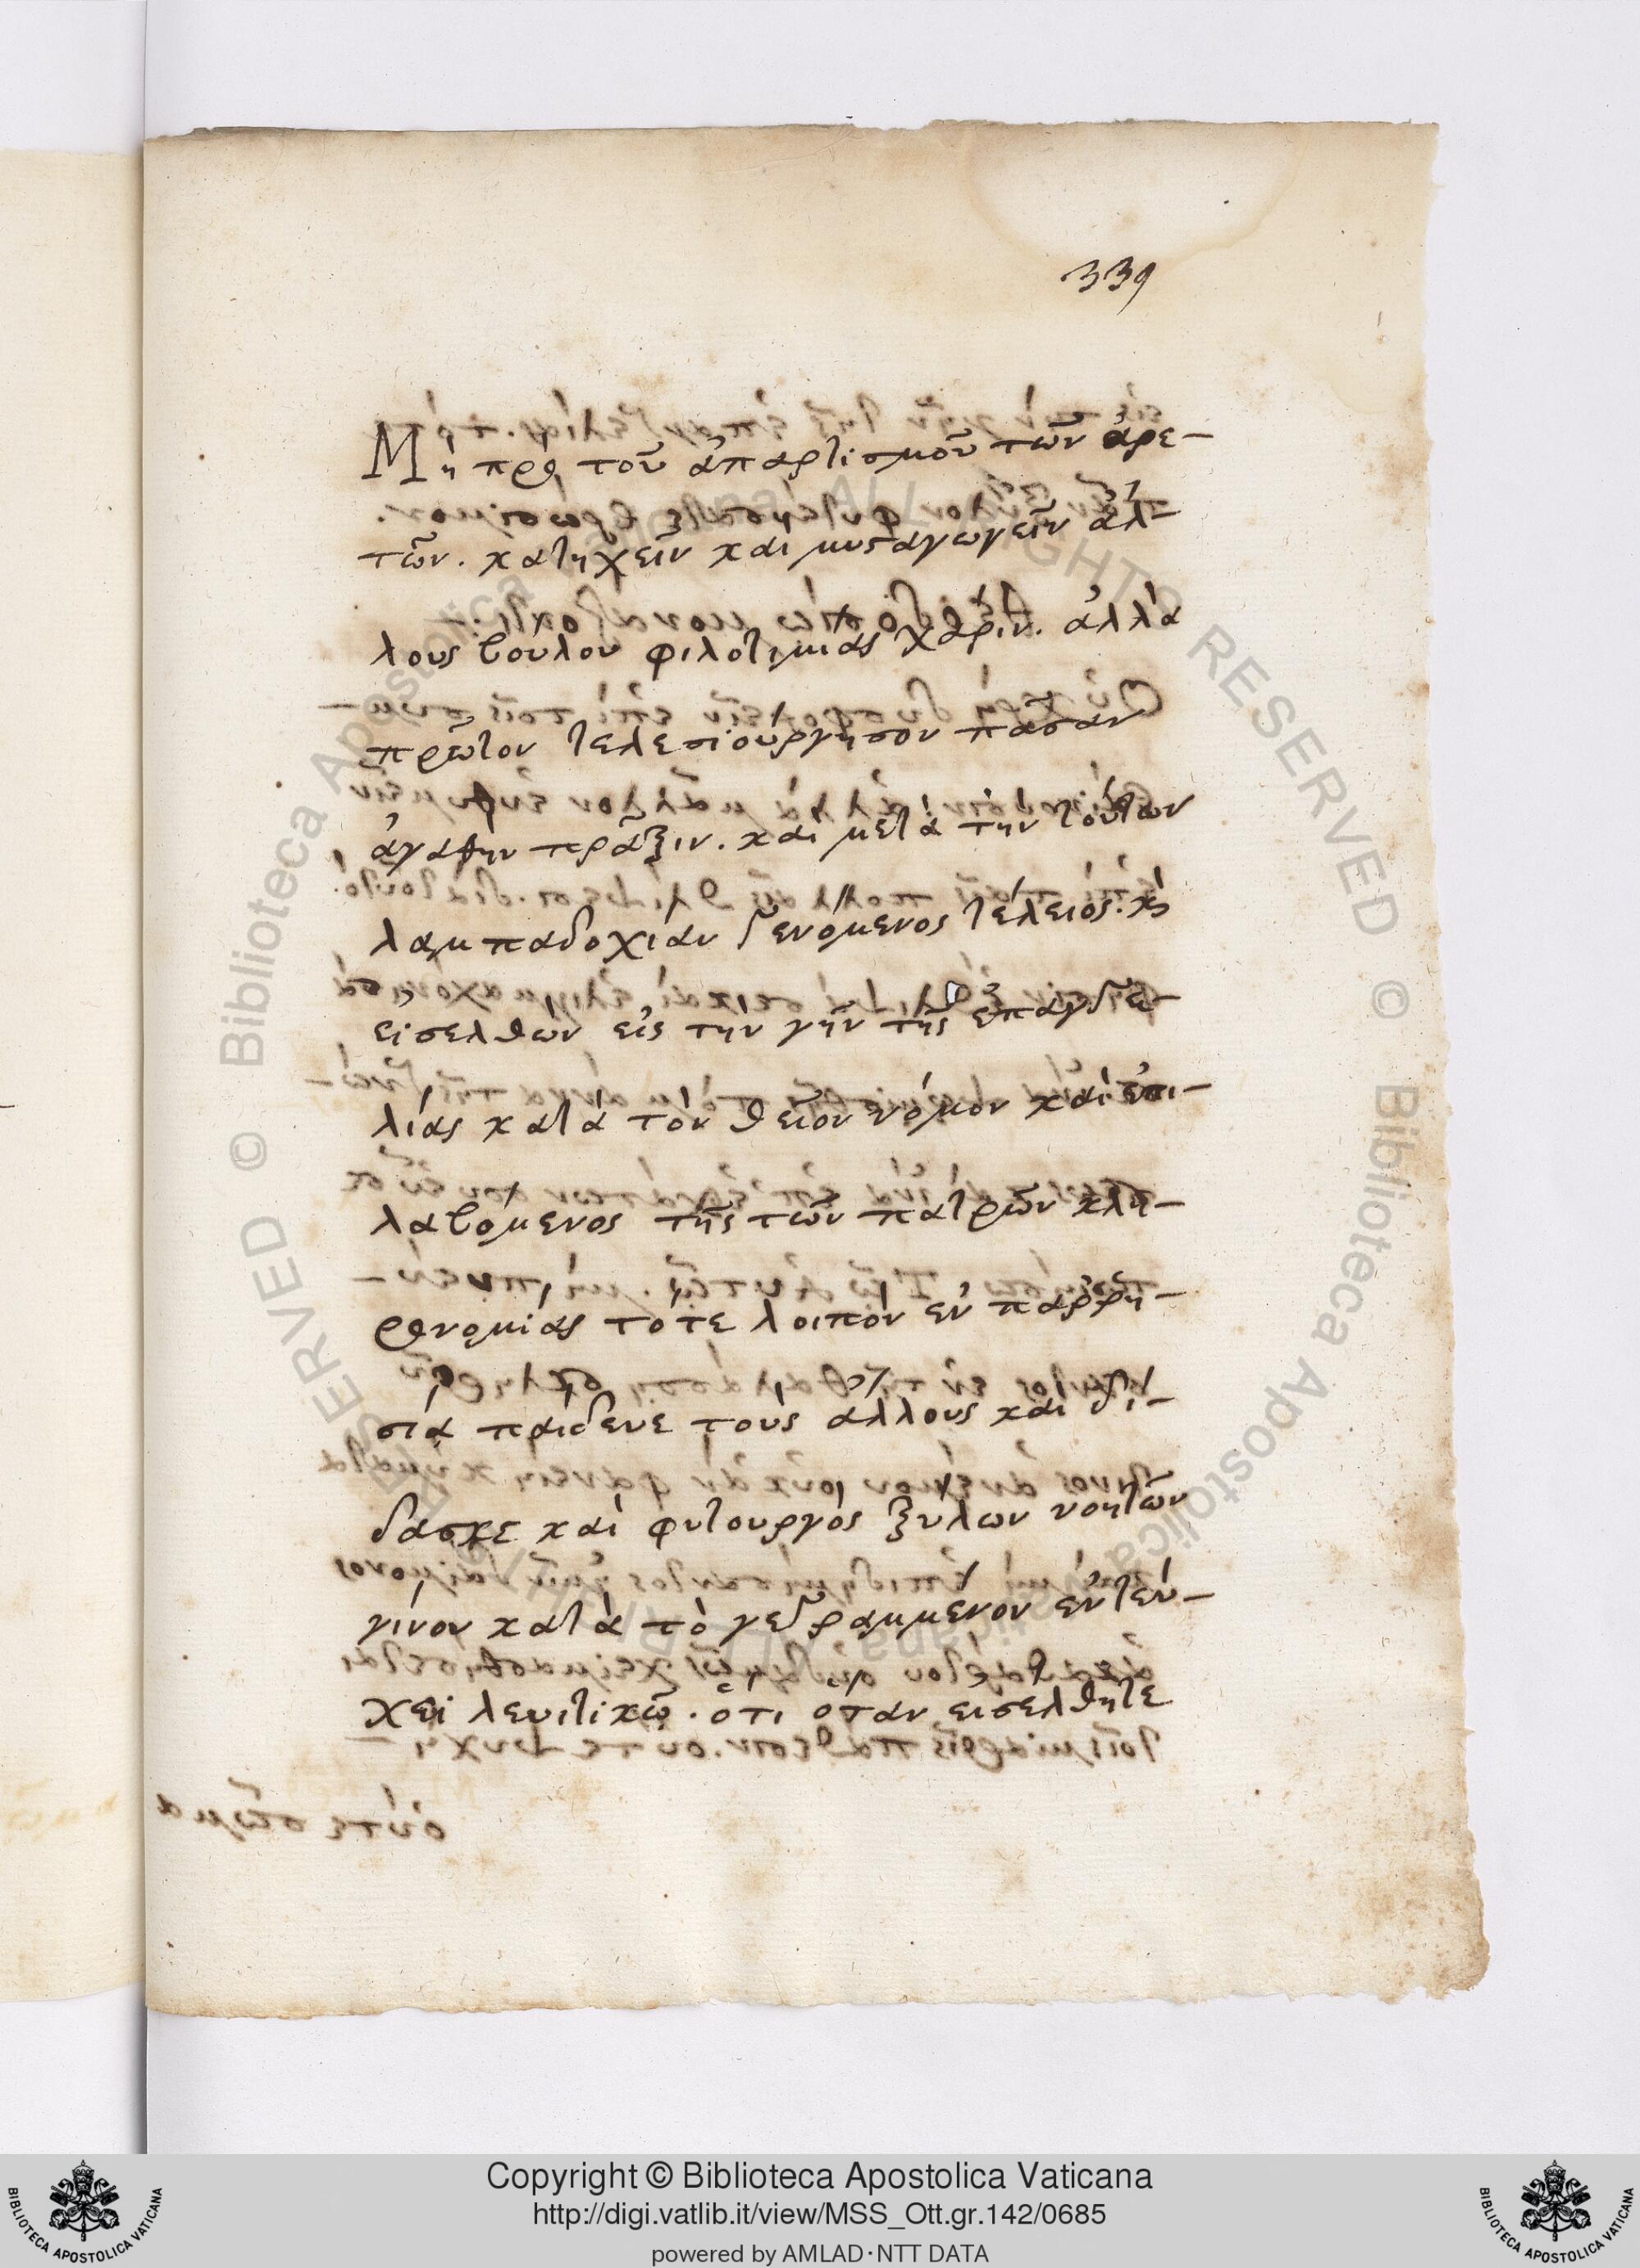 339
Μὴ πρὸ τοῦ ἀπαρτισμοῦ τῶν ἀρε-
τῶν. κατηχεῖν καὶ μυσταγωγεῖν ἀλ-
λους βούλου φιλοτιμίας χάριν. ἀλλὰ
πρῶτον τελεσιούργησον πάσαν
ἀγαθὴν πρᾶξιν. καὶ μετὰ τὴν τούτων
λαμπαδοχίαν γενόμενος τέλειος. καὶ
εἰσελθὼν εἰς τὴν γῆν τῆς ἐπαγγε-
λίας κατὰ τὸν θεῖον νόμον καὶ ἐπι-
λαβόμενος τῆς τῶν πατρῶν κλη-
ρονομίας τότε λοιπὸν ἐν παρρη-
σία παίδευε τοὺς άλλους καὶ δί-
δασκε καὶ φυτουργὸς ξύλων νοητῶν
γίνου κατὰ τὸ γεγραμμένον ἐν τεύ-
χει λευιτικῶ. ὅτι ὅταν εἰσέλθητε
Copyright © Biblioteca Apostolica Vaticana
http://digi.vatlib.it/view/MSS_Ott.gr.142/0685
powered by AMLAD·NTT DATA
BIBLIOTECA APOSTOLICA VATICANA
BIBLIOTECA APOSTOLICA VATICANA